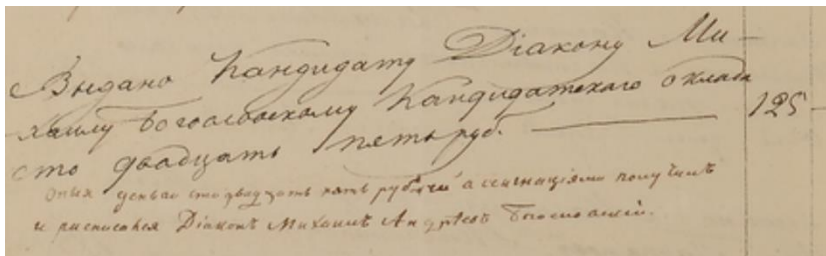 Выдано Кандидату Діакону Ми-
хаилу Богословскому Кандидатскаго оклада
сто двадцать пять руб. 125
Оныя деньги сто двадцать пять рублей ассигнаціями получилъ
и росписался Діаконъ Михаилъ Андреевъ Богословскій.